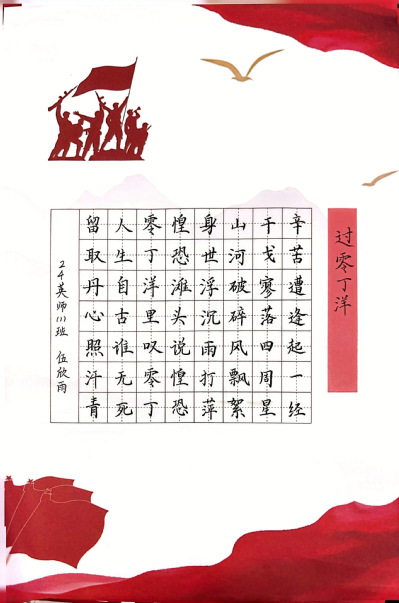 过零丁洋
辛苦遭逢起一经
干戈寥落四周星
山河破碎风飘絮
身世浮沉雨打萍
惶恐滩头说惶恐
零丁洋里叹零丁
人生自古谁无死
留取丹心照汗青
24英师(1)班 伍欣雨